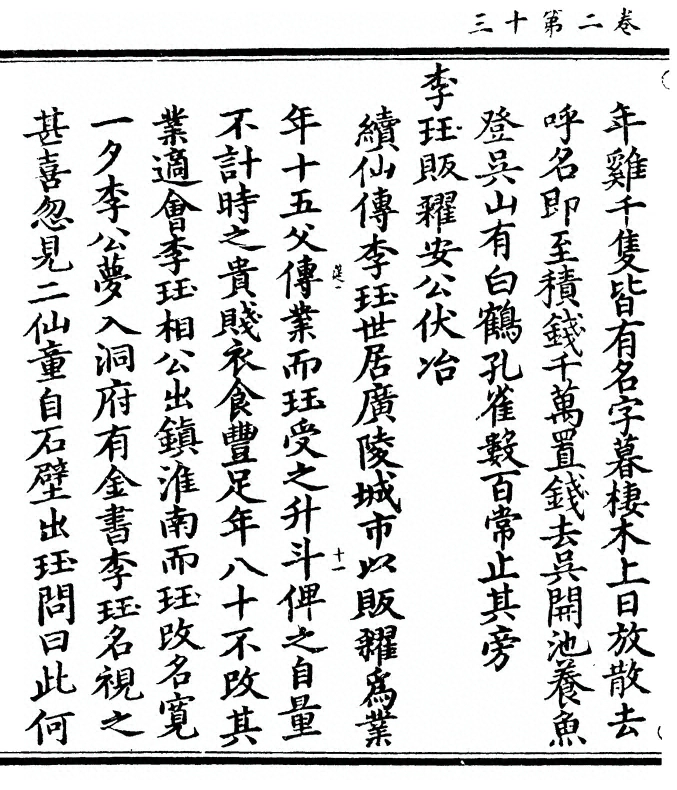 卷二第十三
年雞千隻皆有名字暮棲木上日放散去
呼名即至積錢千萬置錢去吳開池養魚
登吳山有白鶴孔雀數百常止其旁
李珏販糴安公伏冶
續仙傳李珏世居廣陵城市以販糴爲業
年十五父傳業而珏受之升斗俾之自量
十一
不計時之貴賤衣食豐足年八十不改其
業適會李珏相公出鎮淮南而珏改名寬
一夕李公夢入洞府有金書李珏名視之
甚喜忽見二仙童自石壁出珏問曰此何